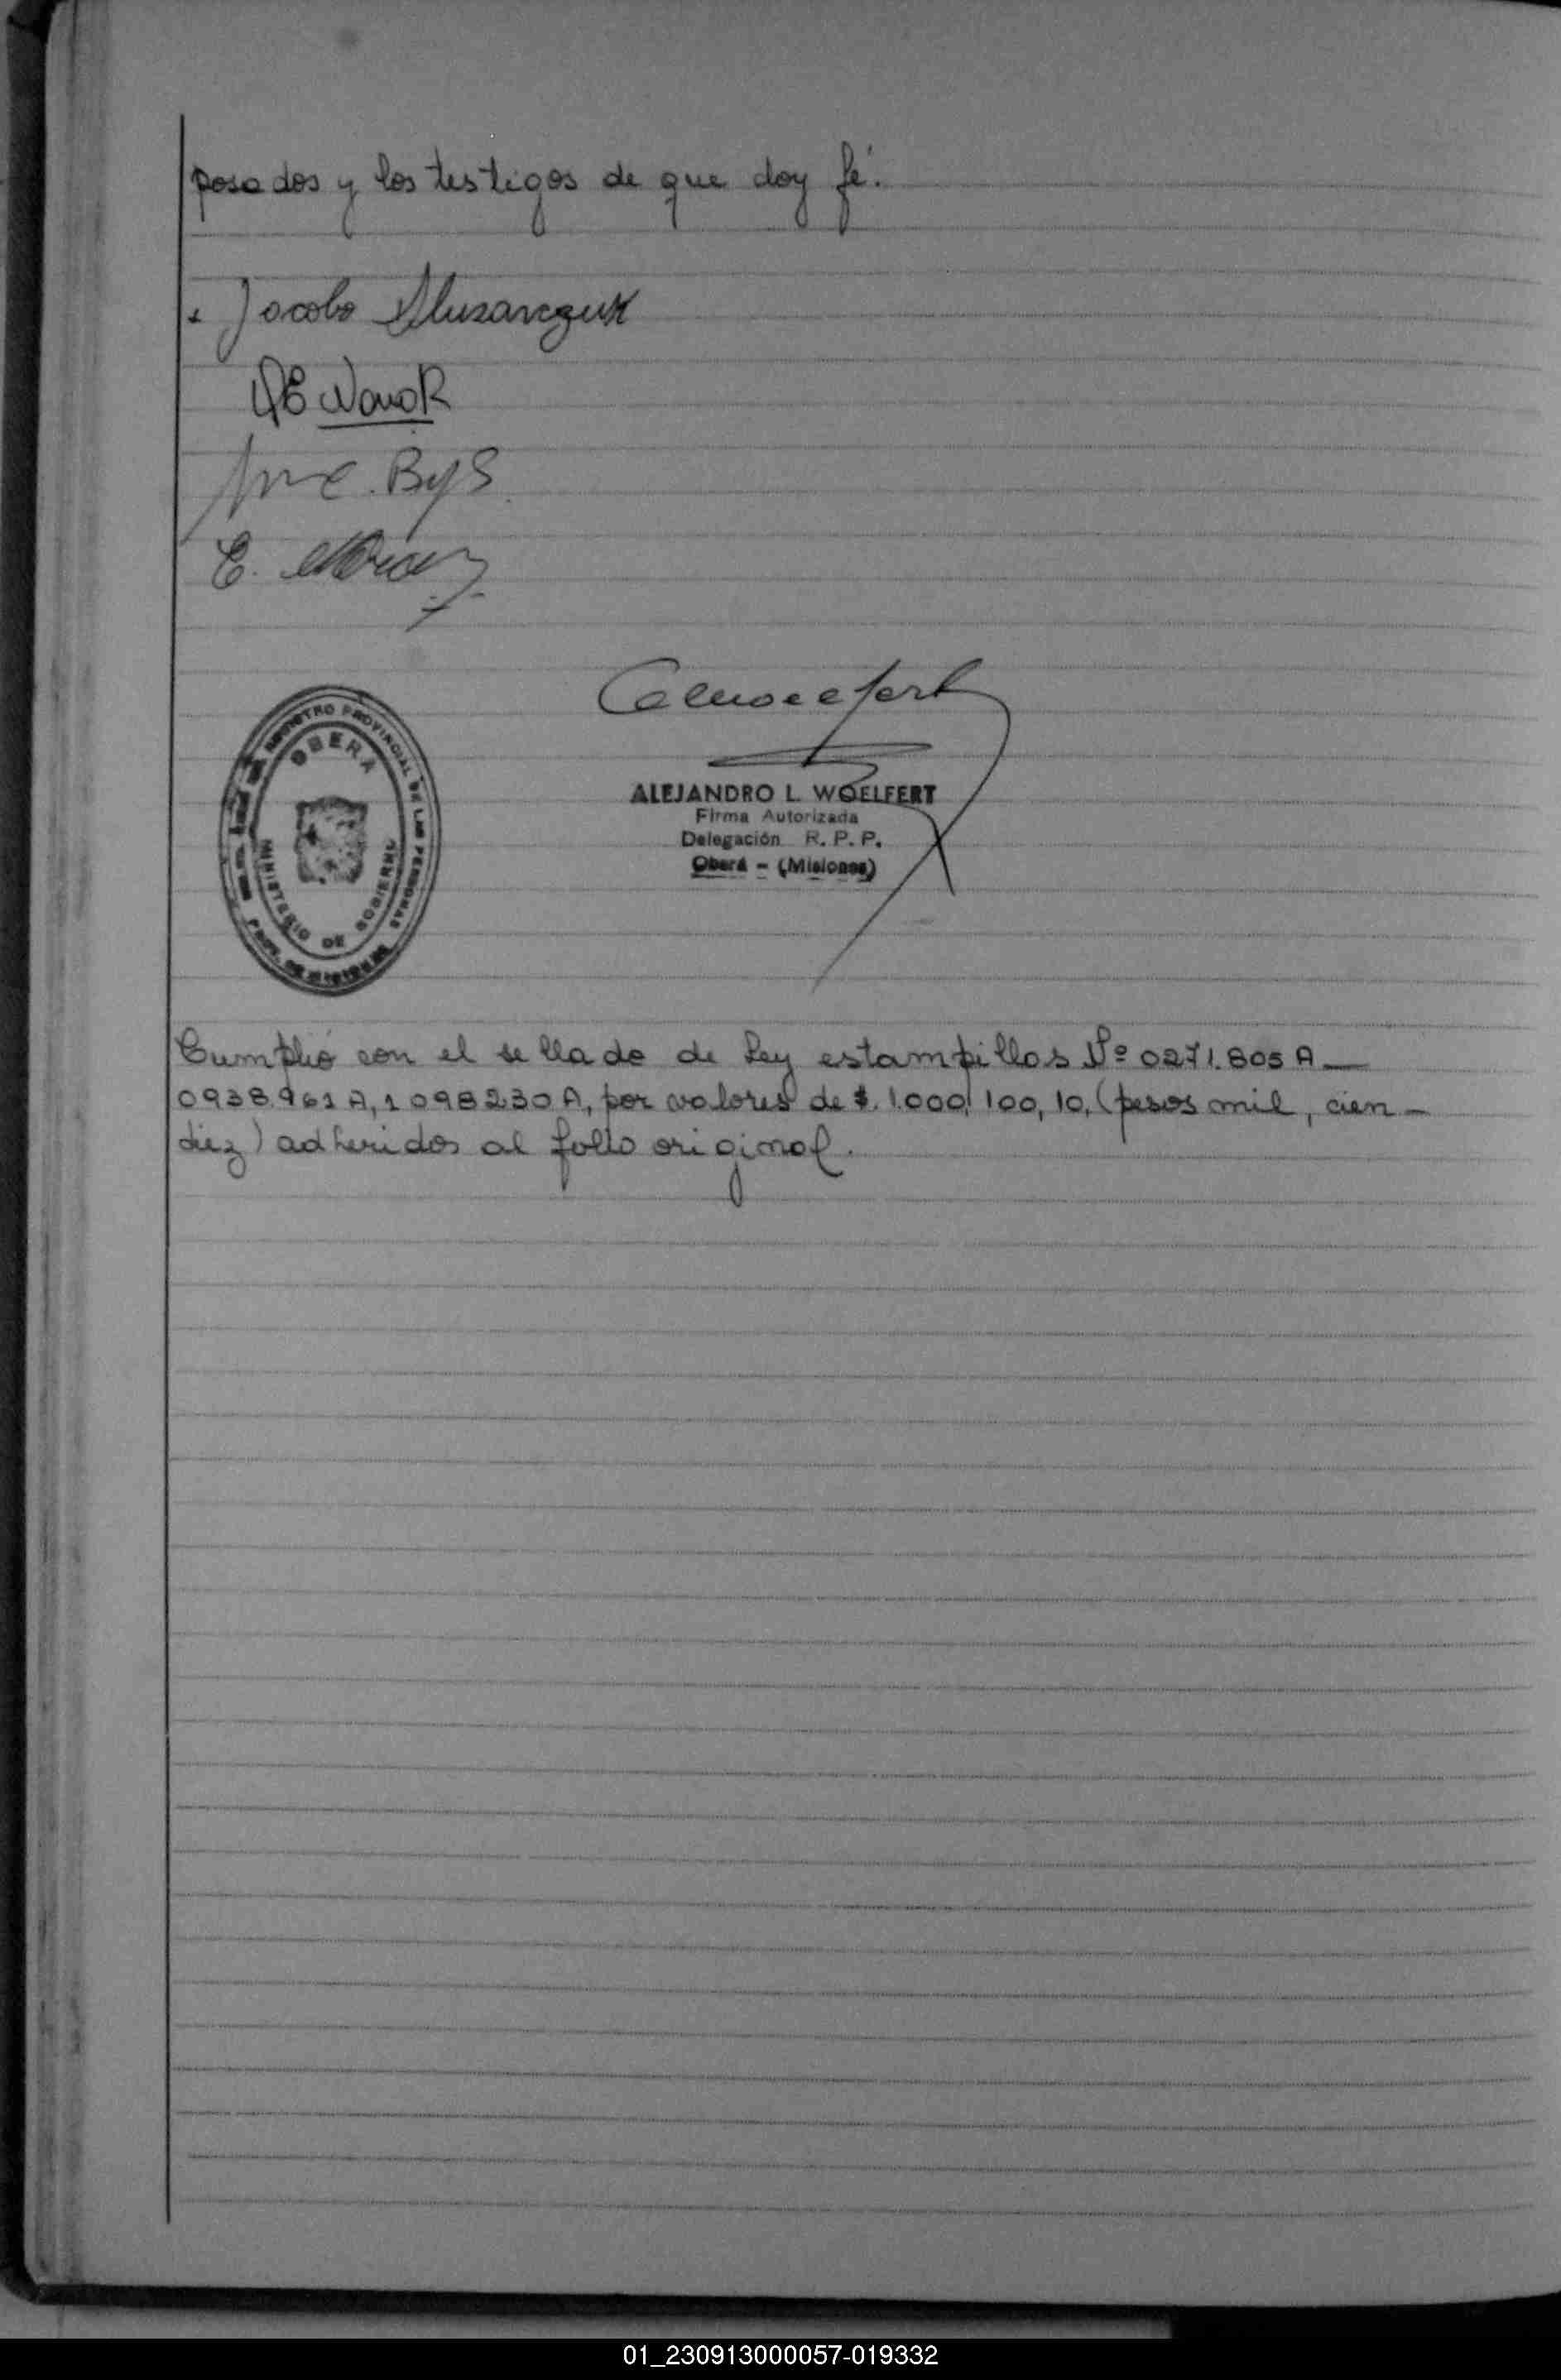 posados y los testigos de que doy fé.
Jacobo Slusarczuk
E.
ALEJANDRO L. WOELFERT
Firma Autorizada
Delegación R. P. P.
Oberá - (Misiones)
REGISTRO PROVINCIAL DE LAS PERSONAS
OBERA
MINISTERIO DE GOBIERNO
PROV. DE MISIONES
Cumplió con el sellado de Ley estampillas Nº 0271.805 A —
0938.961 A, 1 098230 A, por valores de $. 1.000, 100, 10, (pesos mil, cien -
diez) adheridos al folio original.
01_230913000057-019332